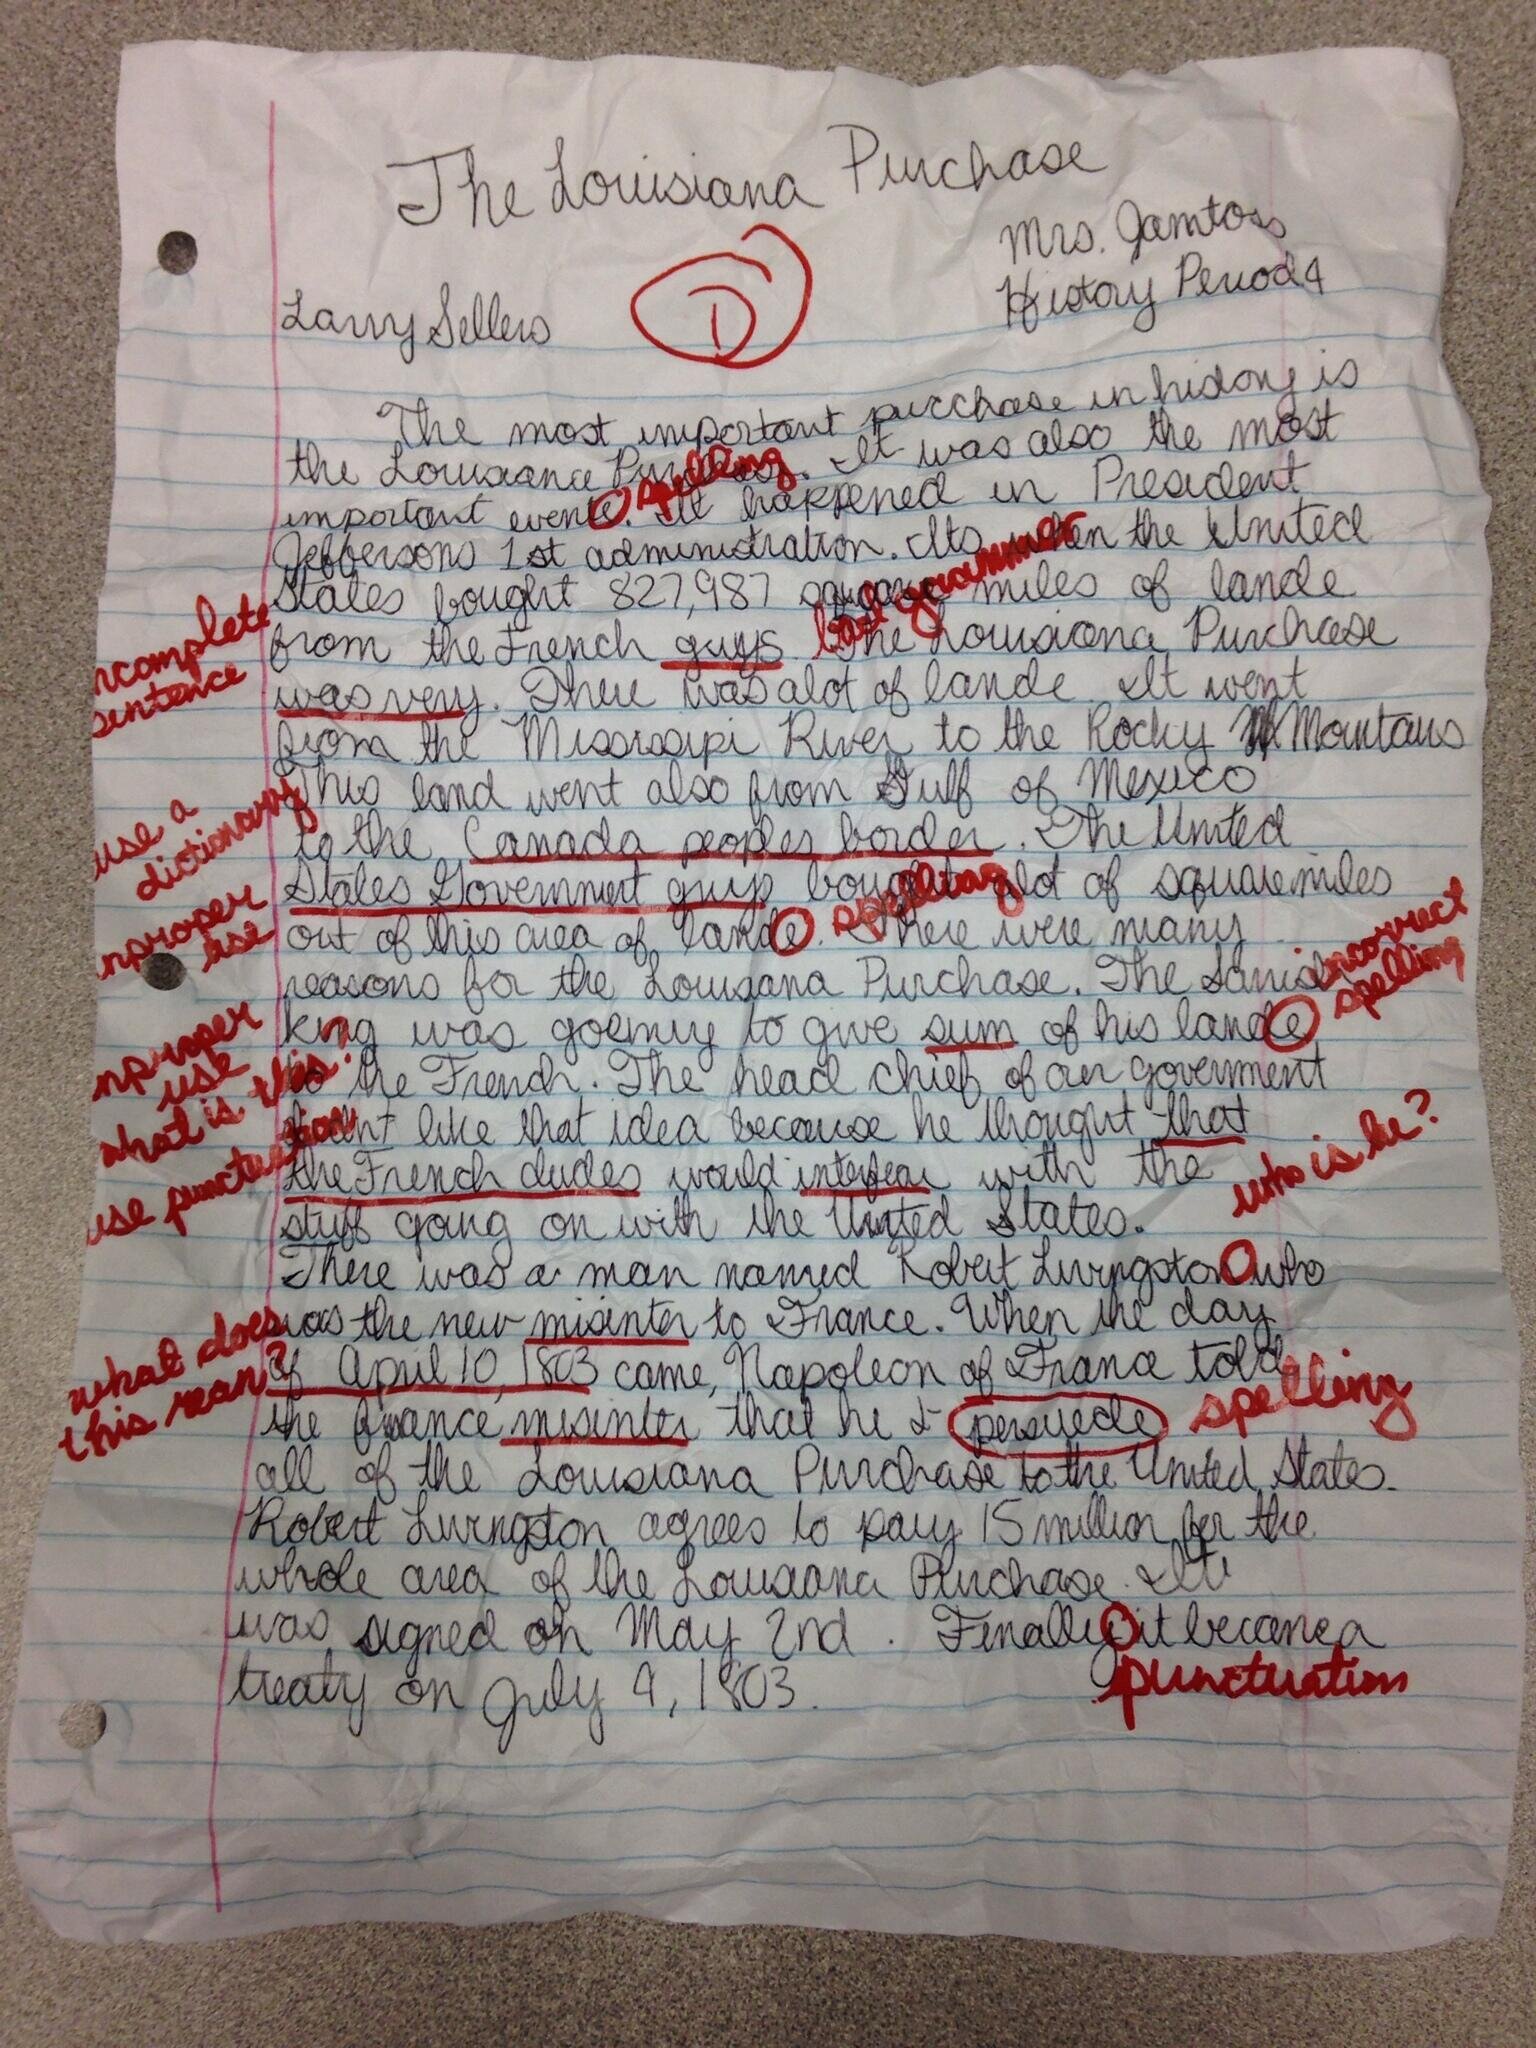 The Louisiana Purchase
Mrs. Jamtoss
History Period 4
D
Larry Sellers
The most important purcchase in hidony is
the Louisiana. It was also the most
spelling
important evente. It happened in President
Jeffersons 1st administration. Its when the United
States bought 827,987 square miles of lande
incomplete
sentence
bad grammar
from the French guys. The Louisiana Purchase
was very. There was alot of lande. It went
from the Mississipi River to the Rocky Montans
This land went also from Gulf of Mexico
use a
dictionary
to the Canada peoples border. The United
States Government guys bought alot of square miles
spelling
improper
use
out of this area of lande. There were many
incorrect
spelling
reasons for the Louisiana Purchase. The
king was to give sum of his lande
improper
use
what is this?
to the French. The head chief of our government
didnt like that idea because he thought that
use punctuation
who is he?
the French dudes would interfear with the
stuff going on with the United States.
There was a man named Robert Livingston who
was the new misinter to France. When the day
what does
this mean?
of April 10, 1803 came, Napoleon of France told
the france misinter that he persuede
spelling
all of the Louisiana Purchase to the United States.
Robert Livingston agrees to pay 15 million for the
whole area of the Louisiana Purchase. It
was signed on May 2nd. Finally it became a
punctuation
treaty on July 4, 1803.